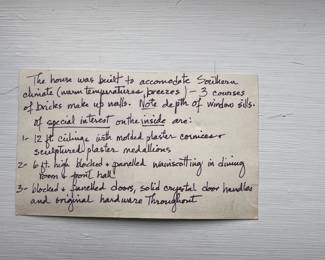 The house was built to accomodate Southern
climate (warm temperatures, breezes) - 3 courses
of bricks make up walls. Note depth of window sills.
Of special interest on the inside are:
1- 12 ft ceilings with molded plaster cornices +
sculptured plaster medallions
2- 6 ft. high blocked + panelled wainscotting in dining
room + front hall
3- blocked + panelled doors, solid crystal door handles
and original hardware throughout